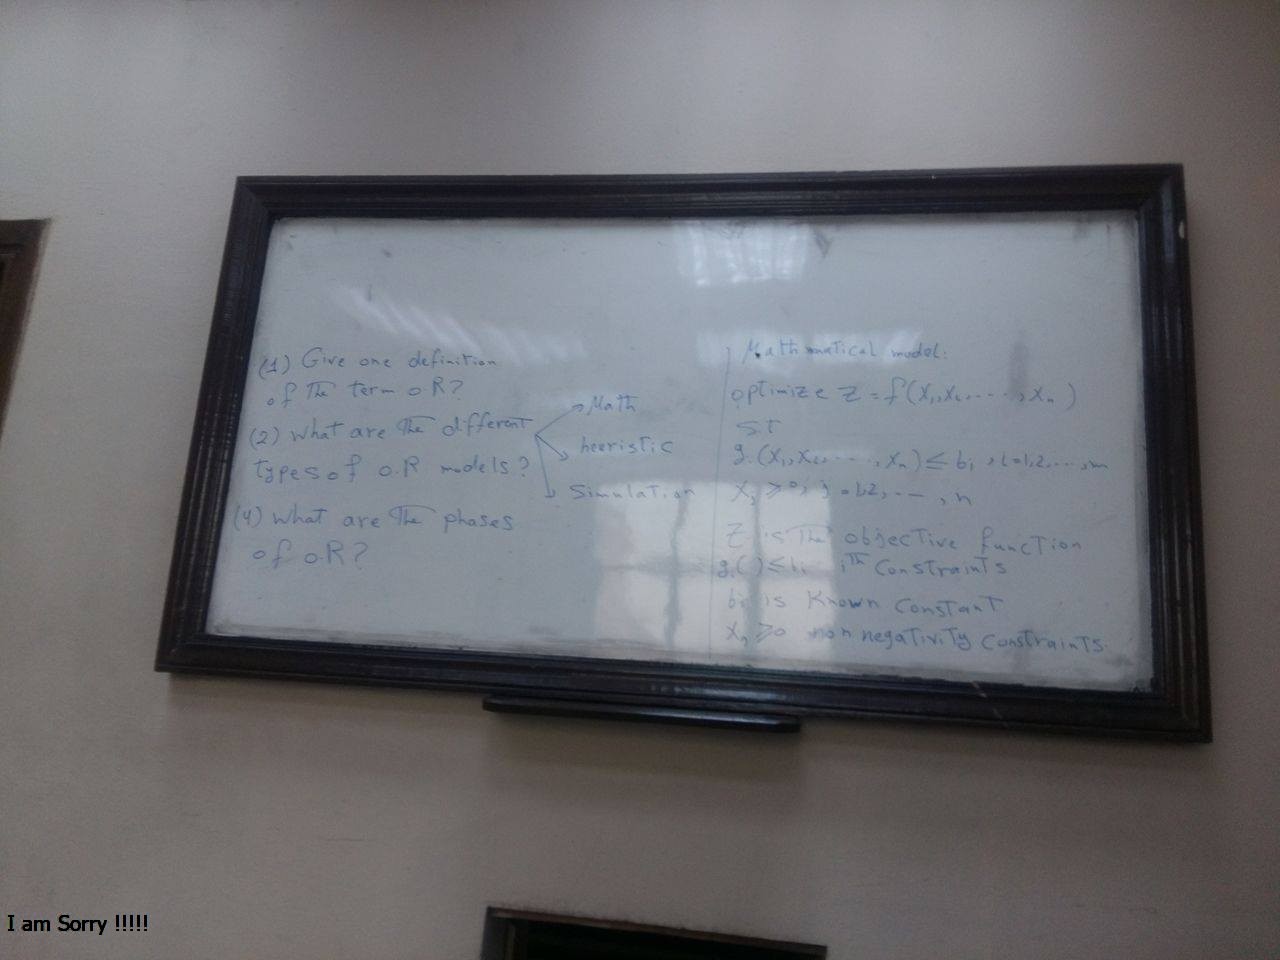 (1) Give one definition
of The term O.R?
(2) What are The different
types of O.R models?
Math
heeristic
Simulation
(4) What are The phases
of O.R?
Mathmatical model:
optimize Z = f(X₁,X₂,----,Xₙ)
S.T
gᵢ(X₁,X₂,----,Xₙ) ≤ bᵢ , i=1,2,...,m
Xⱼ ≥ 0, j=1,2,...,n
Z is The objective function
gᵢ( ) ≤ bᵢ iᵀʰ Constraints
bᵢ is Known Constant
Xⱼ ≥ 0 non negativity Constraints.
I am Sorry !!!!!